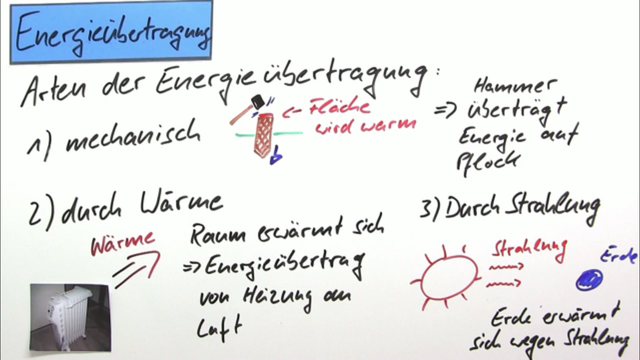 Energieübertragung
Arten der Energieübertragung:
1) mechanisch
<= Fläche
wird warm
Hammer
=> überträgt
Energie auf
Pflock
2) durch Wärme
Wärme
Raum erwärmt sich
=> Energieübertrag
von Heizung an
Luft
3) Durch Strahlung
Strahlung
Erde
Erde erwärmt
sich wegen Strahlung